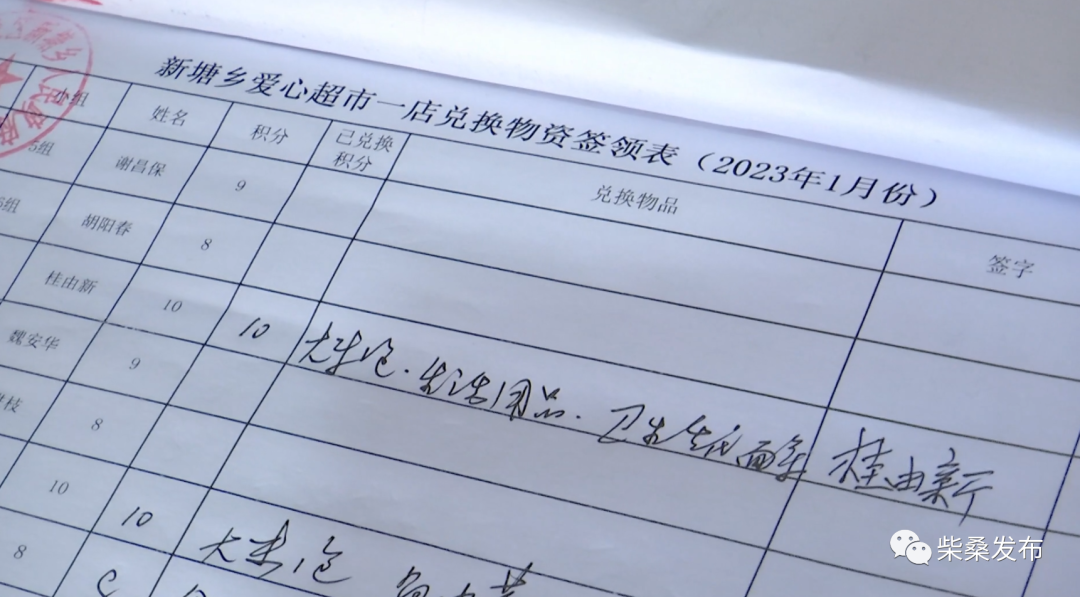 新塘乡爱心超市一店兑换物资签领表（2023年1月份）
小组 姓名 积分 已兑换积分 兑换物品 签字
5组 谢昌保 9
组 胡阳春 8
桂由新 10 10 大米 生活用品 卫生纸 桂由新
魏安华 9
枝 8
10 10 大米
8
柴桑发布